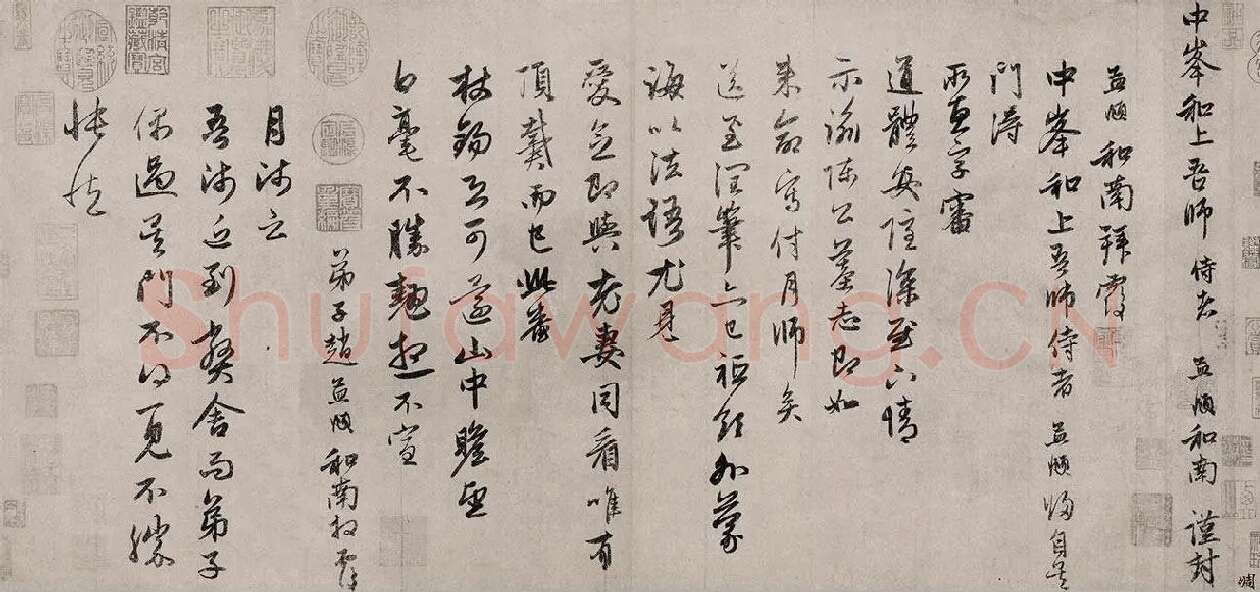 中峯和上吾師 侍者 孟頫和南 謹封
孟頫和南拜覆
中峯和上吾師侍者 孟頫歸自吳
門得
所惠字審
道體安隱深慰下情
示諭陳公墓志即如
來命寫付月師矣
送至潤筆亦已祗領外蒙
誨以法語尤見
愛念即與老妻同看唯有
頂戴而已此番
杖錫又可還山中瞻望
白毫不勝馳想不宣
弟子趙孟頫和南拜覆
月師云
吾師近到弊舍而弟子
偶過吳門不得見不勝
悵恨
Shufawang.CN